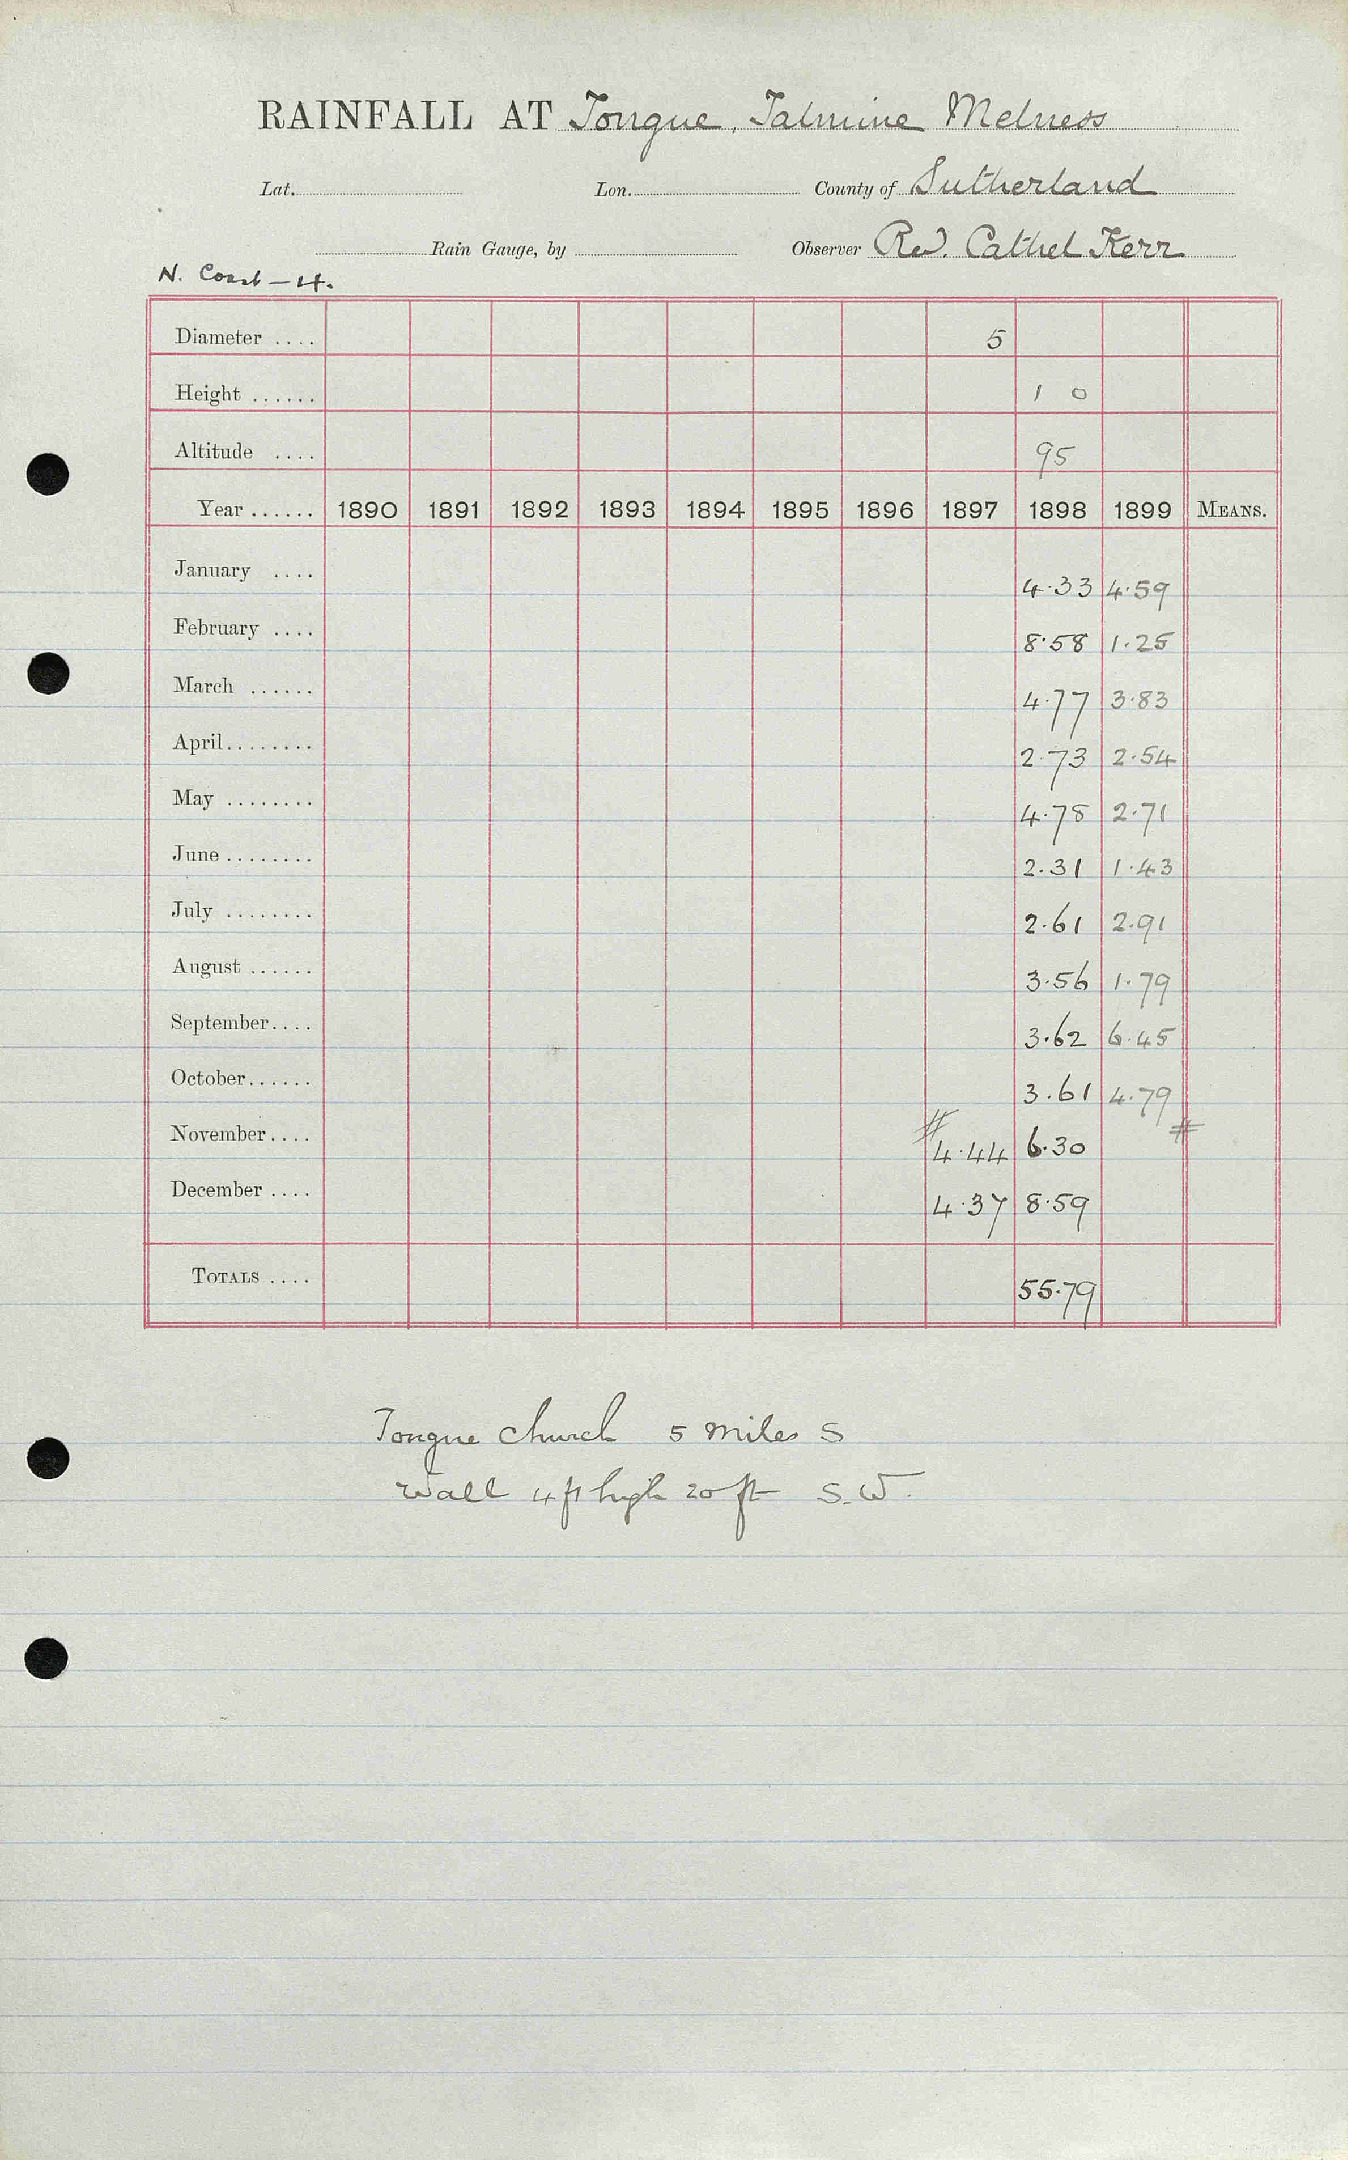 RAINFALL AT Tongue, Talmine Melness
Lat. Lon. County of Sutherland
Rain Gauge, by Observer Rev. Cathel Kerr
N. Coast – 4.
Diameter .... 5
Height ...... 1 0
Altitude .... 95
Year ...... 1890 1891 1892 1893 1894 1895 1896 1897 1898 1899 MEANS.
January .... 4.33 4.59
February .... 8.58 1.25
March ...... 4.77 3.83
April........ 2.73 2.54
May ........ 4.78 2.71
June ........ 2.31 1.43
July ........ 2.61 2.91
August ...... 3.56 1.79
September.... 3.62 6.45
October...... 3.61 4.79
November.... # 4.44 6.30 #
December .... 4.37 8.59
TOTALS .... 55.79
Tongue Church 5 miles S
Wall 4 ft high 20 ft S.W.